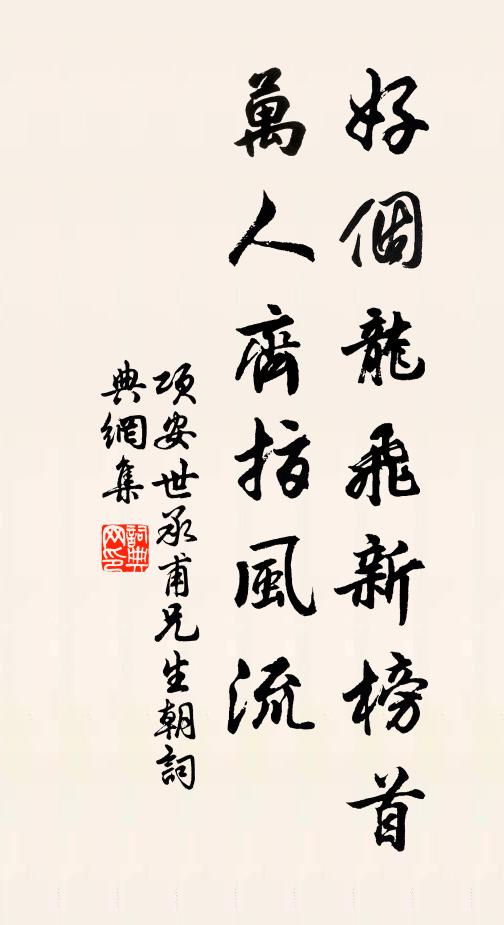 好個龍飛新榜首
萬人齊指風流
項安世承甫兄生朝詞
典網集
詞典網印